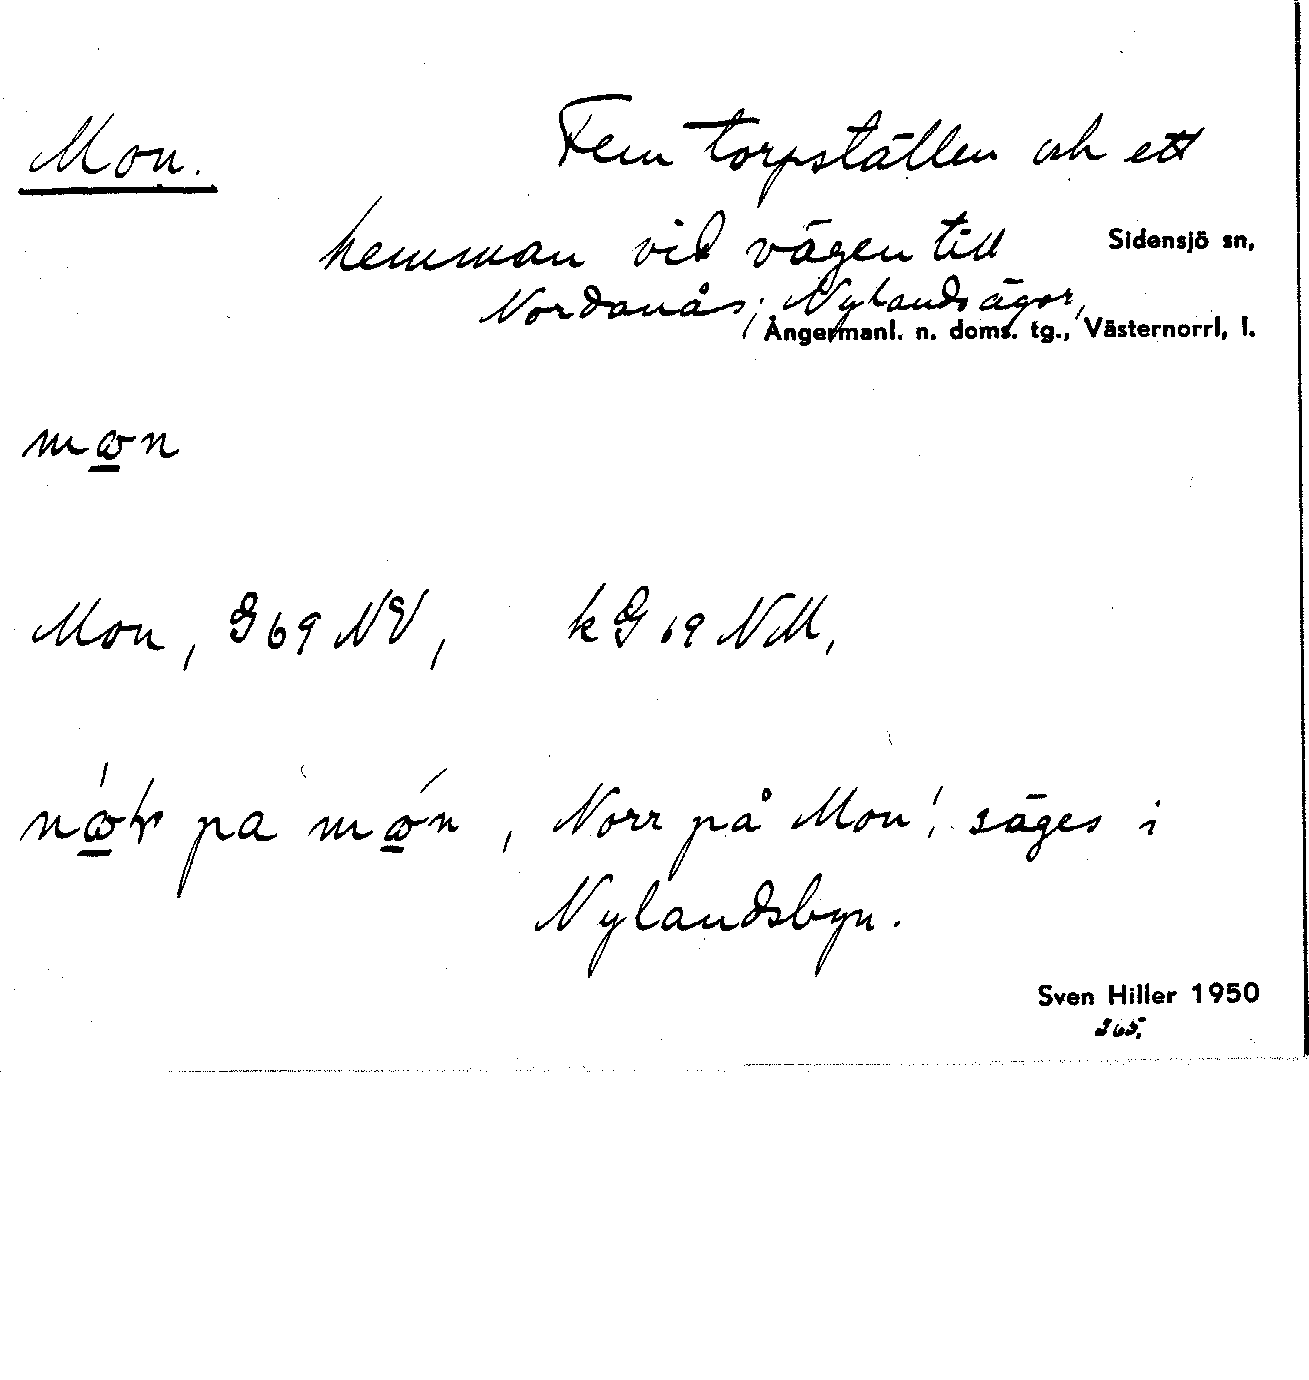 Mon. Fem torpställen och ett
hemman vid vägen till Sidensjö sn,
Nordanås; Nylandsägor,
Ångermanl. n. doms. tg., Västernorrl, l.
mon
Mon, G69 NV, kG 69 NM,
pa Norr på Mon! säges i
Nylandsbyn.
Sven Hiller 1950
365.